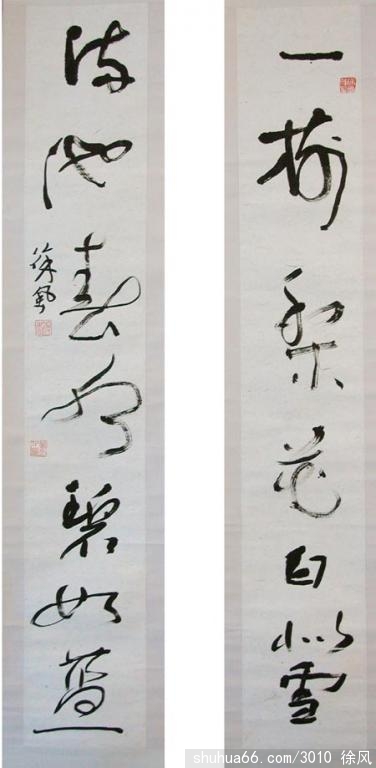 一树梨花白似雪
满池春水碧如蓝
徐風
shuhua66.com/3010 徐风